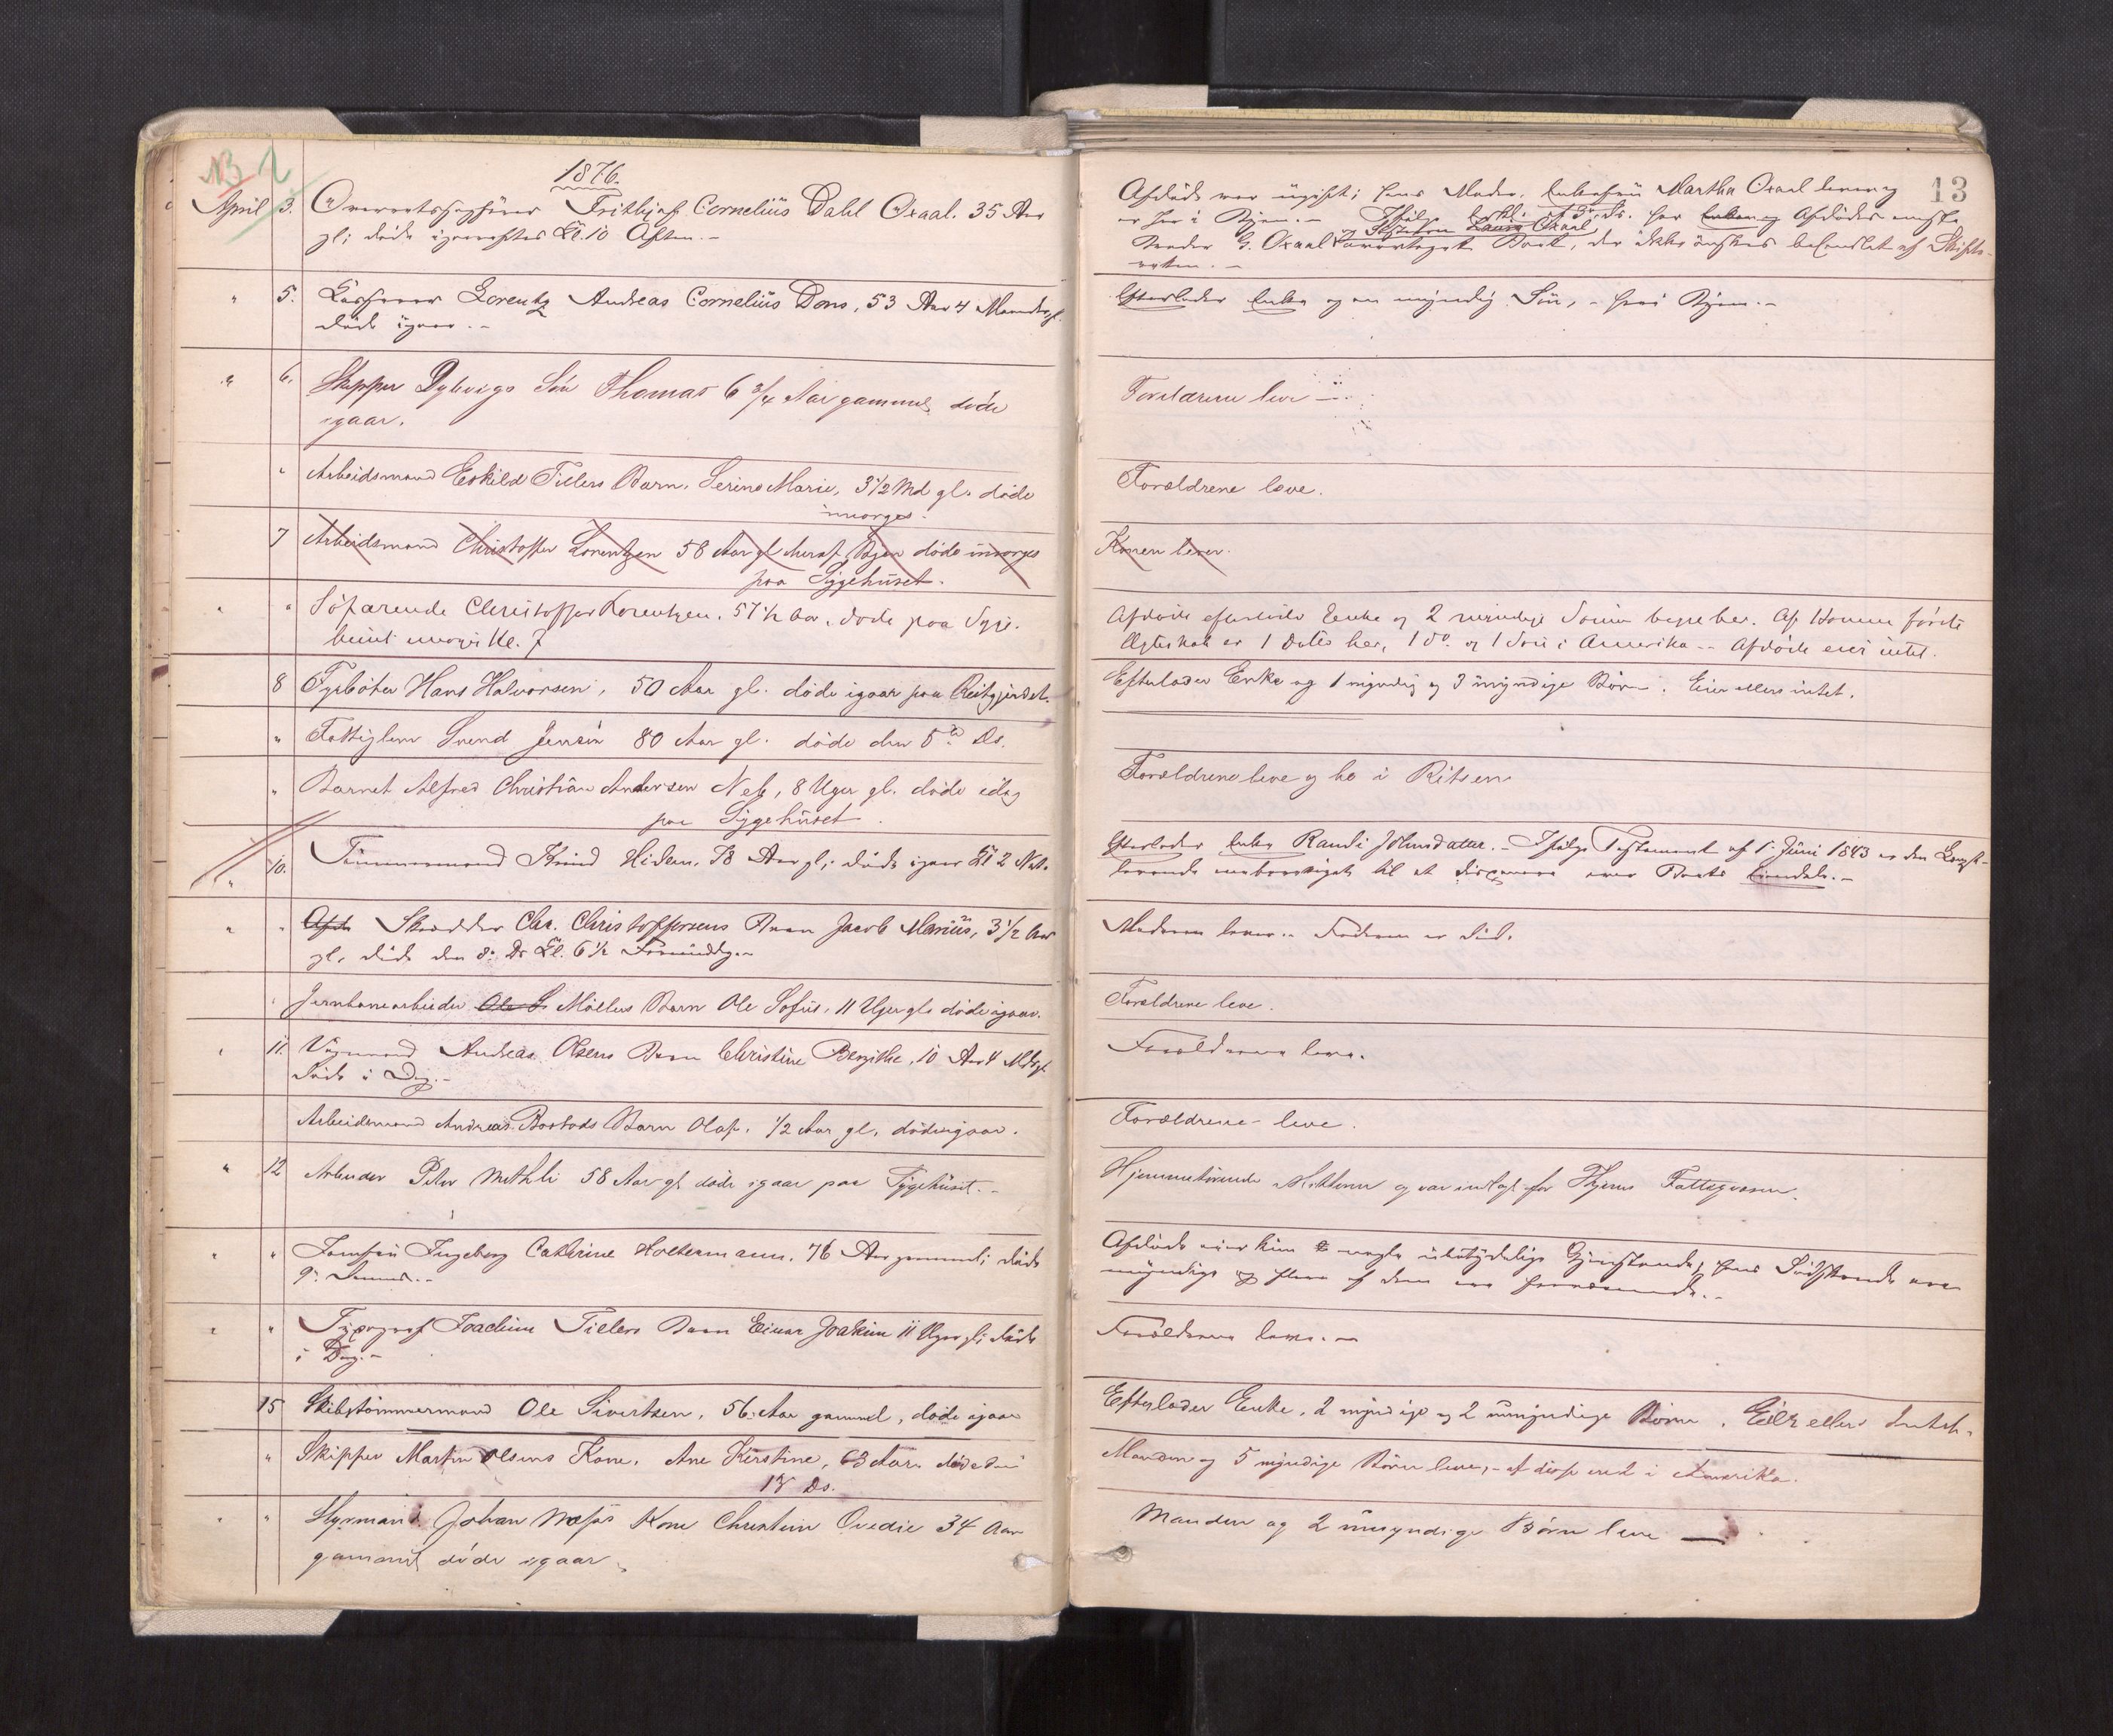 1876.
April 3. Overretssagfører Frithjof Cornelius Dahl Oxaal. 35 Aar
gl; døde igaaraftes Kl. 10 Aften. -
" 5. Kasserer Lorentz Andreas Cornelius Dons, 53 Aar 4 Maander gl.
døde igaar. -
" 6. Skipper Dybvigs Søn Thomas 6 3/4 Aar gammel, døde
igaar.
" Arbeidsmand Eskild Tillers Barn. Serine Marie, 3 1/2 Md gl. døde
imorges.
7 Arbeidsmand Christoffer Lorentzen 58 Aar gl. heraf Byen døde imorges
paa Sygehuset.
" " Søfarende Christoffer Lorentzen. 57 1/2 Aar. døde paa Syge-
huset imorges Kl. 7
8 Fyrbøter Hans Halvorsen, 50 Aar gl. døde igaar paa Reitgjerdet.
" Fattiglem Svend Jensen 80 Aar gl. døde den 5te Ds.
" Barnet Alfred Christian Andersen Neb, 8 Uger gl. døde idag
paa Sygehuset.
" 10. Tømmermand Hidem, 78 Aar gl; døde igaar Kl 2 Nat.
" " Afd Skrædder Chr. Christophersens Barn Jacob Marius, 3 1/2 Aar
gl, døde den 8. Ds Kl. 6 1/2 Formiddag. -
" Jernbanearbeider Ole S Møllers Barn Ole Sofus, 11 Uger gl. døde igaar.
" 11. Vognmand Andreas Olsens Barn Christine Bergithe, 10 Aar 4 Mdr gl.
døde i Dag. -
Arbeidsmand Andreas Bostads Barn Olaf. 1/2 Aar gl, døde igaar.
" 12 Arbeider Peter Methli 58 Aar gl døde igaar paa Sygehuset. -
" " Jomfru Ingeborg Cathrine Holtermann. 76 Aar gammel; døde
9. Dennes. -
" " Typograf Joachim Tillers Barn Einar Joakim 11 Uger gl; døde
i Dag. -
15 Skibstømmermand Ole Sivertsen, 56 Aar gammel, døde igaar
" Skipper Martin Olsens Kone. Ane Kirstine, 63 Aar. døde den
13 Ds.
" " Styrmand Johan Kone Christine Ovedie 34 Aar
gammel døde igaar.
13
Afdøde var ugift; hans Moder, Enkefru Martha Oxaal lever og
er her i Byen. - Ifølge af 3. Ds. har Enken og Afdødes eneste
og Søsteren Laura Oxaal
Broder G. Oxaal overtaget Boet, der ikke ønskes behandlet af Skifte-
retten. -
Efterlader Enke og en myndig Søn, - her i Byen. -
Forældrene leve -
Forældrene leve.
Konen lever.
Afdøde efterlader Enke og 2 myndige Sønner begge her. Af Hanne første
Ægteskab er 1 Datter her, 1 do. og 1 Søn i Amerika. - Afdøde eier intet.
Efterlader Enke og 1 myndig og 3 umyndige Børn. Eier ellers intet.
Forældrene leve og bo i Ritsen
Efterlader Enke Randi Johnsdatter. - Ifølge Testament af 1. Juni 1843 er den Længst-
levende uberettiget til at disponere over Boets Eiendele. -
Moderen lever. - Faderen er død.
Forældrene leve.
Forældrene leve.
Forældrene leve.
Hjemmehørende og var indlagt for Fattigvæsen.
Afdøde eier kun nogle ubetydelige Gjenstande; hans Sødskende ere
myndige og flere af dem ere fraværende. -
Forældrene leve. -
Efterlader Enke, 2 myndige og 2 umyndige Børn. Eier ellers Intet.
Manden og 5 myndige Børn leve, - af disse ere 2 i Amerika.
Manden og 2 umyndige Børn leve -